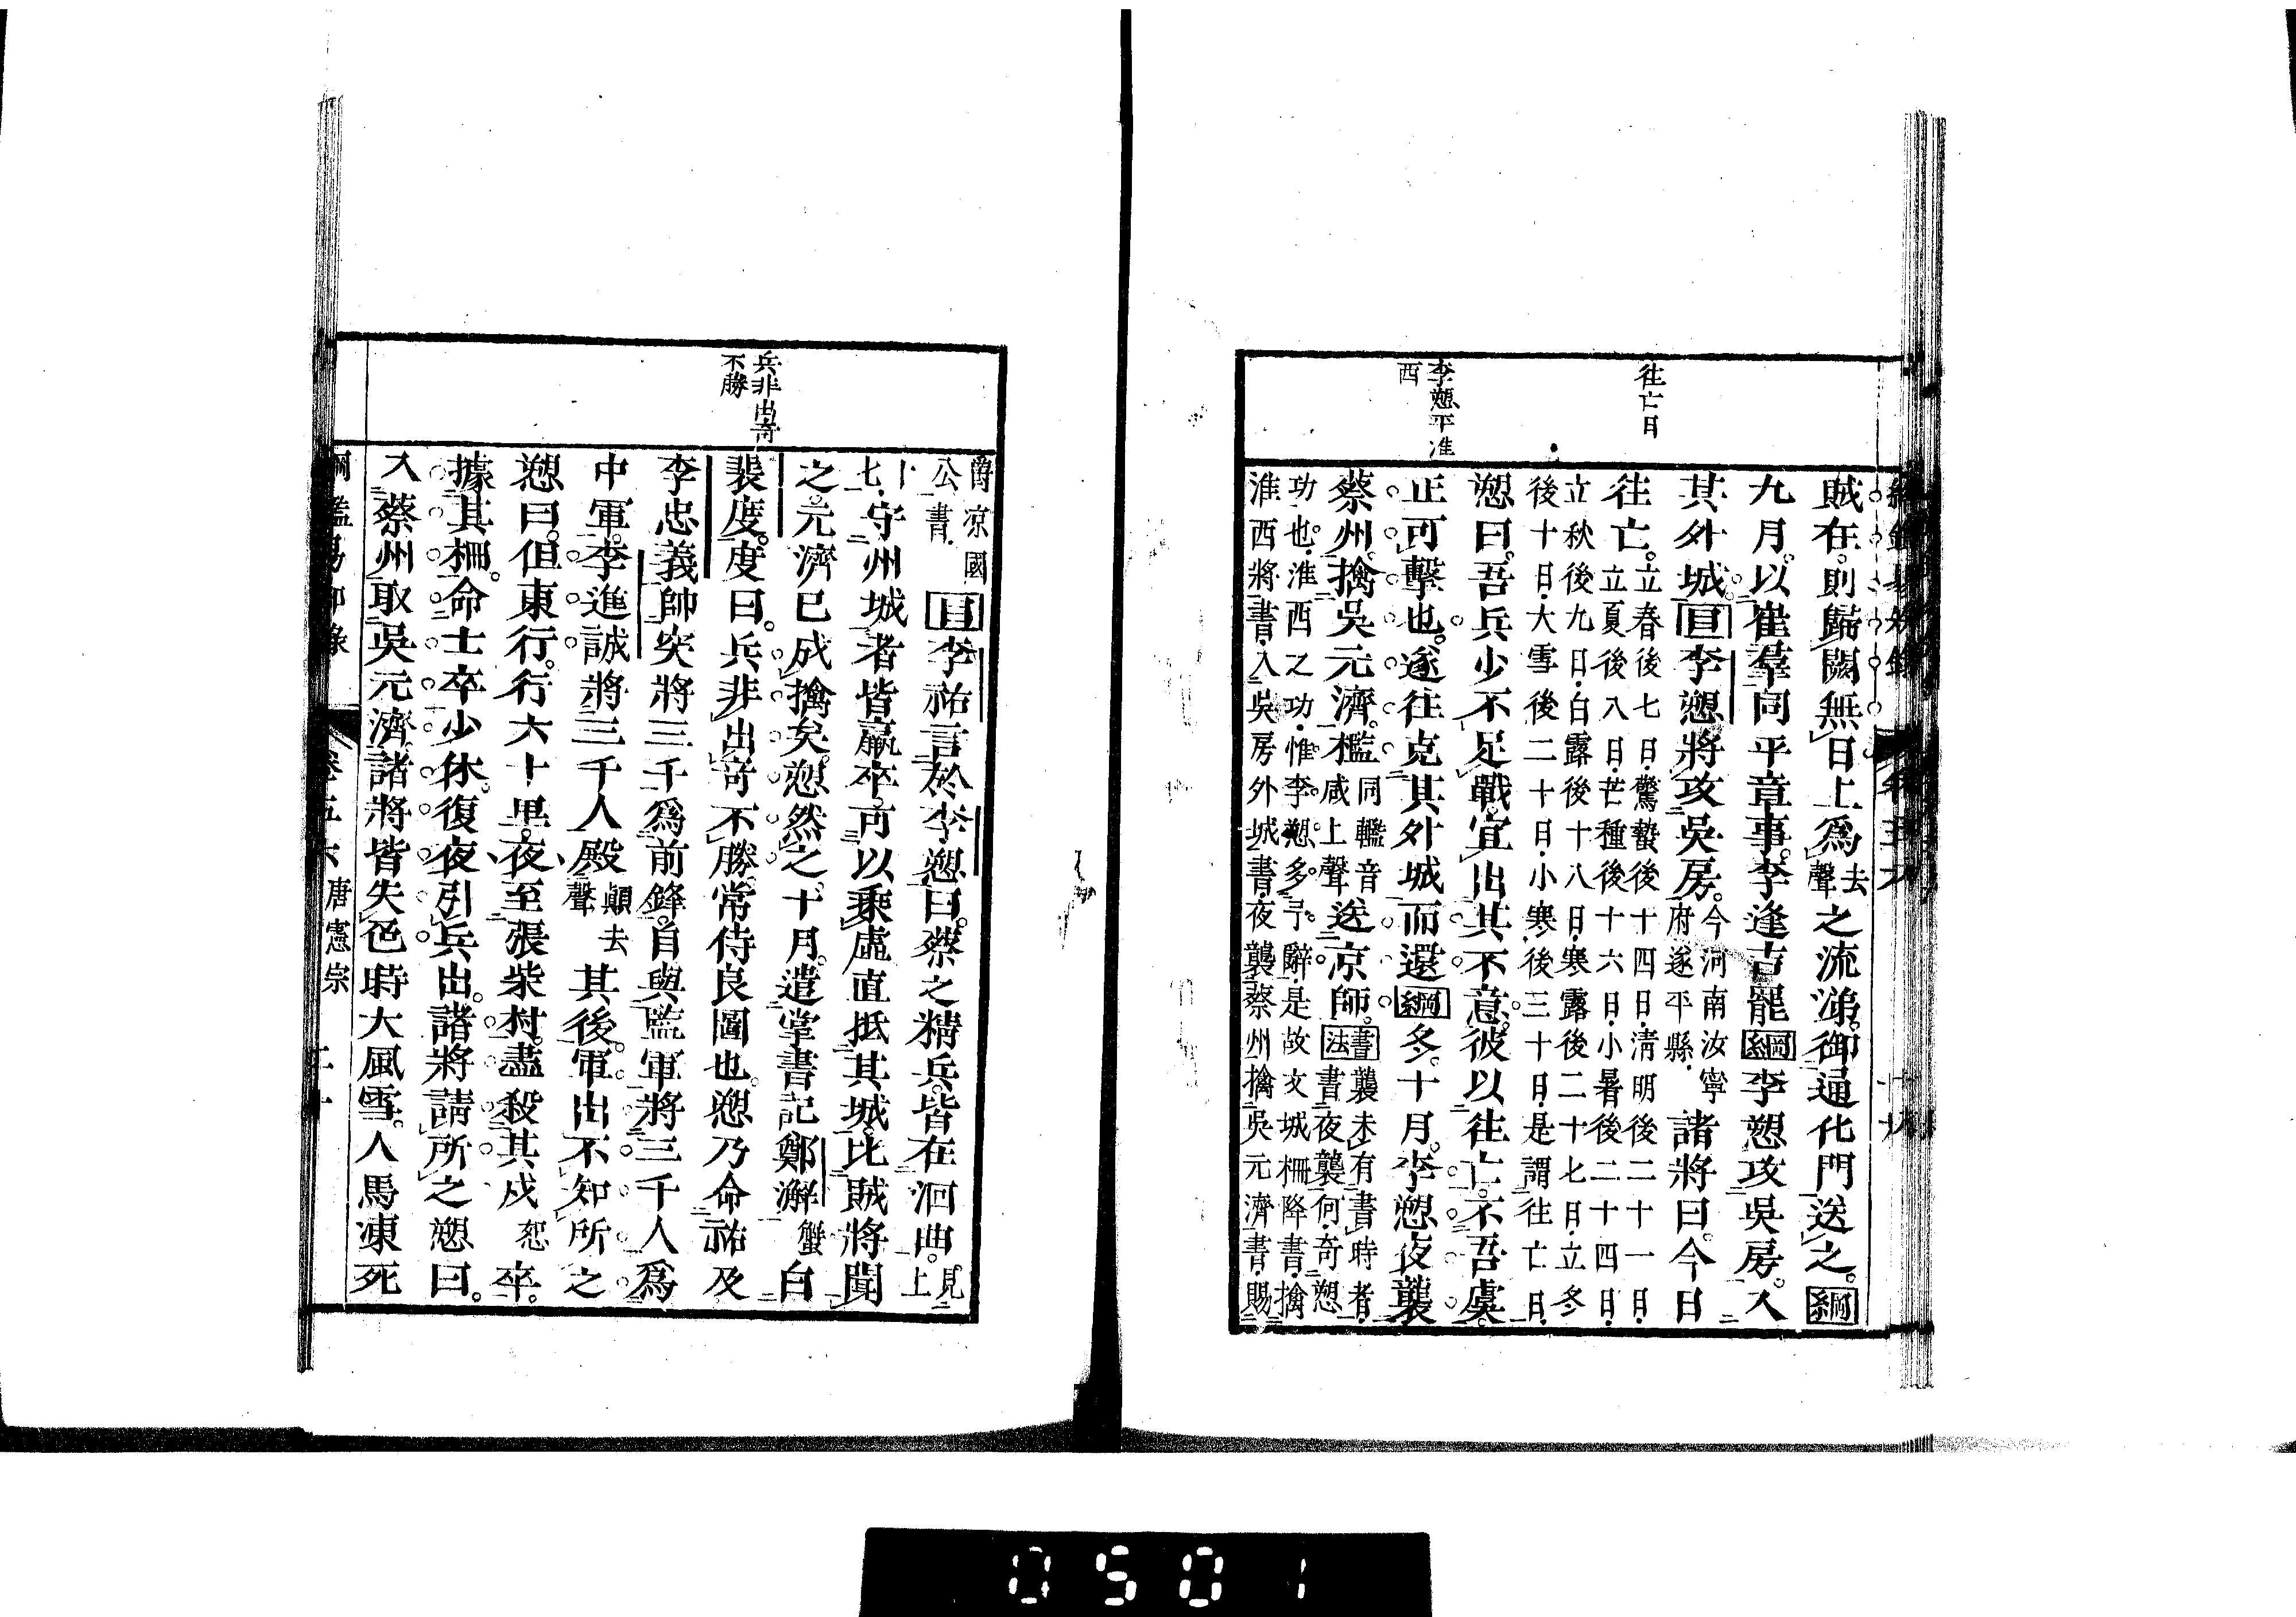 往亡日
李愬平淮
西
賊在則歸闕無日上爲去聲之流涕御通化門送之綱
九月以崔羣同平章事李逢吉罷綱李愬攻吳房入
其外城目李愬將攻吳房今河南汝寧府遂平縣諸將曰今日
往亡立春後七日驚蟄後十四日清明後二十一日
立夏後八日芒種後十六日小暑後二十四日
立秋後九日白露後十八日寒露後二十七日立冬
後十日大雪後二十日小寒後三十日是謂往亡日
愬曰吾兵少不足戰宜出其不意彼以往亡不吾虞
正可擊也遂往克其外城而還綱冬十月李愬夜襲
蔡州擒吳元濟檻同轞音咸上聲送京師書法襲未有書時者書夜襲何奇愬
功也淮西之功惟李愬多予辭是故文城柵降書擒
淮西將書入吳房外城書夜襲蔡州擒吳元濟書賜
兵非出奇
不勝
爵凉國
公書目李祐言於李愬曰蔡之精兵皆在洄曲見上
守州城者皆羸卒可以乘虛直抵其城比賊將聞
之元濟已成擒矣愬然之十月遣掌書記鄭澥蟹白
裴度度曰兵非出奇不勝常侍良圖也愬乃命祐及
李忠義帥突將三千爲前鋒自與監軍將三千人爲
中軍李進誠將三千人殿顚去聲其後軍出不知所之
愬曰但東行行六十里夜至張柴村盡殺其戍恕卒
據其柵命士卒少休復夜引兵出諸將請所之愬曰
入蔡州取吳元濟諸將皆失色時大風雪人馬凍死
綱鑑易知錄 卷五六 唐憲宗